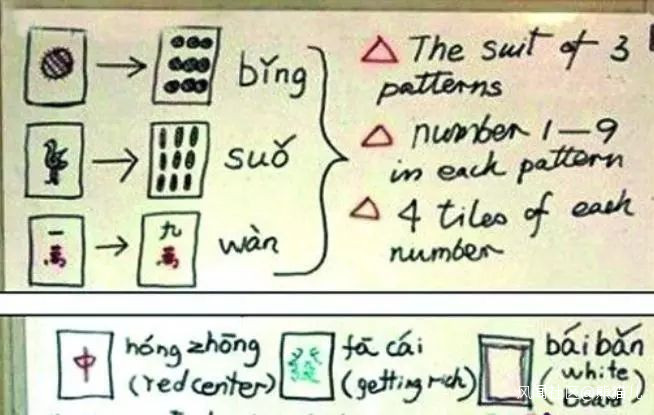 bǐng
suǒ
一萬
九萬
wàn
△ The suit of 3
patterns
△ number 1-9
in each pattern
△ 4 tiles of each
number
中
hóng zhōng
(red center)
fā cái
(getting rich)
bái bǎn
(white
board)